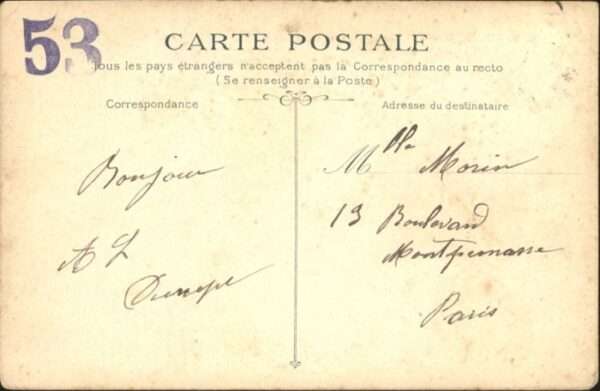 53
CARTE POSTALE
Tous les pays étrangers n'acceptent pas la Correspondance au recto
(Se renseigner à la Poste)
Correspondance
Adresse du destinataire
Bonjour
A L
Mlle Morin
13 Boulevard
Montparnasse
Paris